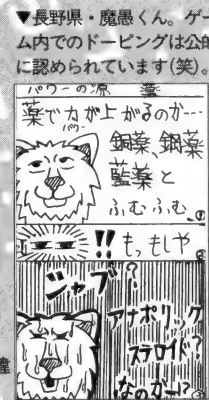 ▼長野県・魔愚くん。ゲー
ム内でのドーピングは公的
に認められています(笑)。
パワーの源 薬
薬で力が上がるのか…
パワー
銅薬、鋼薬
藍薬と
ふむふむ。
①
!! もっもしや
②
ジャブ?
アナボリック
ステロイド?
なのかー!?
③